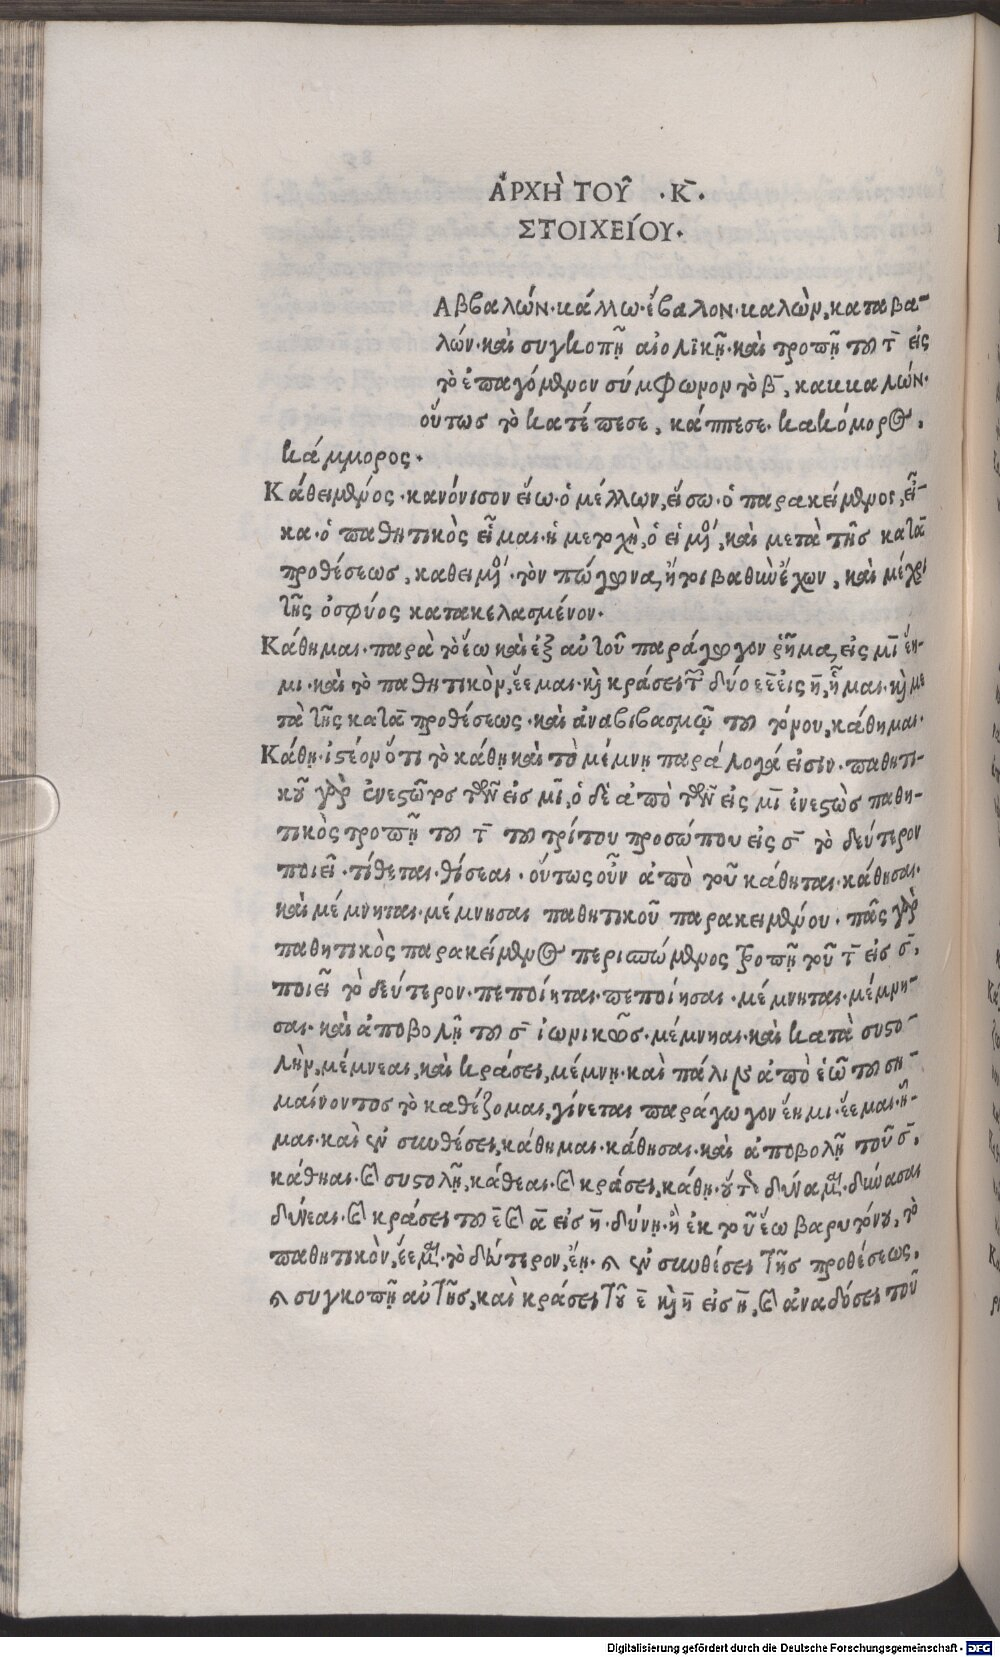 ἈΡΧῊ ΤΟΥ͂ ·Κ̄·
ΣΤΟΙΧΕΊΟΥ·
Αββαλών·κάλλω·ἔβαλον·καλὼν,καταβα-
λών·καὶ συγκοπῇ αἰολικῇ·καὶ τροπῇ τοῦ τ̄ εἰς
τὸ ἐπαγόμενον σύμφωνον τὸ β̄, κακκαλών·
οὕτως τὸ κατέπεσε, κάππεσε·κακόμορος,
κάμμορος·
Κάθειμένος·κανόνισον ἕω·ὁ μέλλων,ἥσω·ὁ παρακείμενος,εἶ-
κα·ὁ παθητικὸς εἷμαι·ἡ μετοχὴ,ὁ εἱμένος,καὶ μετὰ τῆς κατὰ
προθέσεως, καθειμένος·τὸν πώγωνα,ἤτοι βαθὺν ἔχων, καὶ μέχρι
τῆς ὀσφύος κατακελασμένον·
Κάθημαι·παρὰ τὸ ἕω καὶ ἐξ αὐτοῦ παράγωγον ῥῆμα,εἰς μῑ ἕη-
μι·καὶ τὸ παθητικὸν,ἕεμαι·καὶ κράσει τῶν δύο ε̄ε̄ εἰς η̄,ἧμαι·καὶ με
τὰ τῆς κατὰ προθέσεως·καὶ ἀναβιβασμῷ τοῦ τόνου,κάθημαι·
Κάθῃ·ἰστέον ὅτι τὸ κάθῃ καὶ τὸ μέμνῃ παράλογά εἰσιν·παθητι-
κοῦ γὰρ ἐνεστῶτος τῶν εἰς μῑ,ὁ δὲ ἀπὸ τῶν εἰς μῑ ἐνεστὼς παθη-
τικὸς τροπῇ τοῦ τ̄ τοῦ τρίτου προσώπου εἰς σ̄ τὸ δεύτερον
ποιεῖ·τίθεται·θίσεαι·οὕτως οὖν ἀπὸ τοῦ κάθηται·κάθησαι·
καὶ μέμνηται·μέμνησαι παθητικοῦ παρακειμένου·πᾶς γὰρ
παθητικὸς παρακείμενος περισπώμενος τροπῇ τοῦ τ̄ εἰς σ̄,
ποιεῖ τὸ δεύτερον·πεποίηται·πεποίησαι·μέμνηται·μέμνη-
σαι·καὶ ἀποβολῇ τοῦ σ̄ ἰωνικῶς·μέμνηαι·καὶ κατὰ συστο-
λὴν,μέμνεαι,καὶ κράσει,μέμνῃ·καὶ πάλιν ἀπὸ ἑῶ τοῦ ση-
μαίνοντος τὸ καθέζομαι,γίνεται παράγωγον ἕημι·ἕεμαι·ἧ-
μαι·καὶ ἐν συνθέσει,κάθημαι·κάθησαι·καὶ ἀποβολῇ τοῦ σ̄,
κάθηαι·καὶ συστολῇ,κάθεαι·καὶ κράσει,κάθῃ·οὕτως δύναμαι·δύνασαι
δύνεαι·καὶ κράσει τοῦ ε̄ καὶ ᾱ εἰς η̄·δύνῃ·ἢ ἐκ τοῦ ἕω βαρυτόνου,τὸ
παθητικὸν,ἕεμαι·τὸ δεύτερον,ἕῃ·καὶ ἐν συνθέσει τῆς προθέσεως,
καὶ συγκοπῇ αὐτῆς,καὶ κράσει τοῦ ε̄ καὶ η̄ εἰς η̄,καὶ ἀναδόσει τοῦ
Digitalisierung gefördert durch die Deutsche Forschungsgemeinschaft - DFG